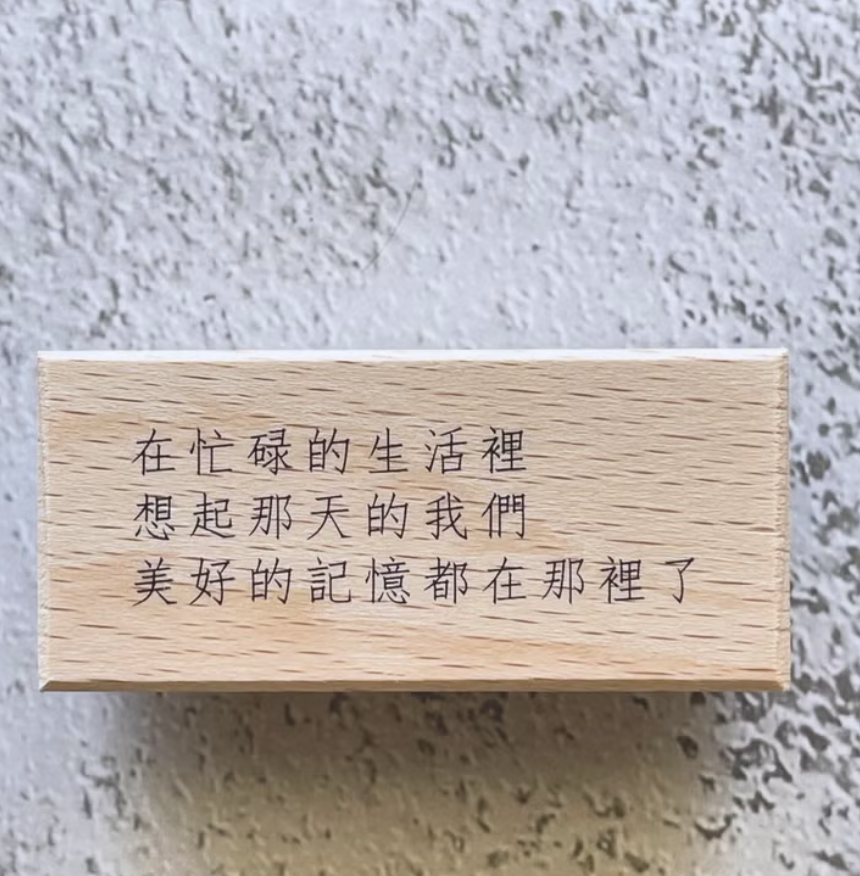 在忙碌的生活裡
想起那天的我們
美好的記憶都在那裡了